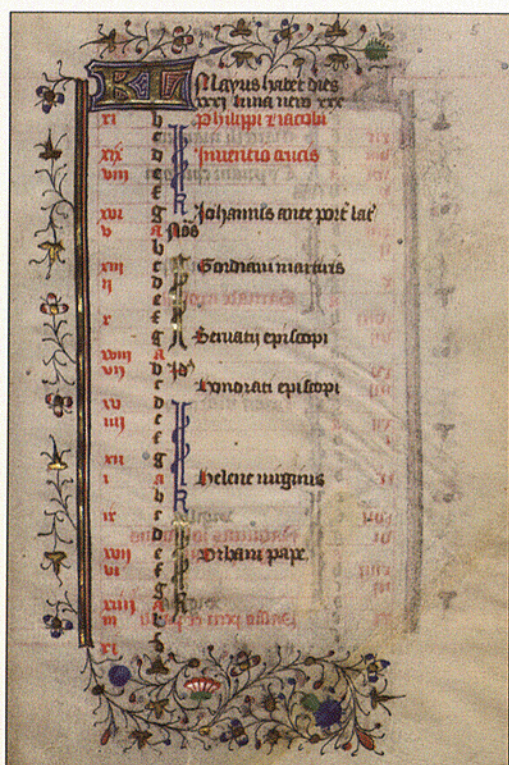 KL Mayus habet dies
xxxi luna vero xxx
xi b Philippi z iacobi
c
xix d Inventio crucis
viii e
f
xvi g Johannis ante port lat
v a Nos
b
xiii c Gordiani martiris
ii d
e
x f
g Servatij episcopi
xviii a
vii b Id
c episcopi
xv d
iiii e
f
xii g
i a Helene virginis
b
ix c
d
xvii e Urbani pape
vi f
g
xiiii a
iii b
xi